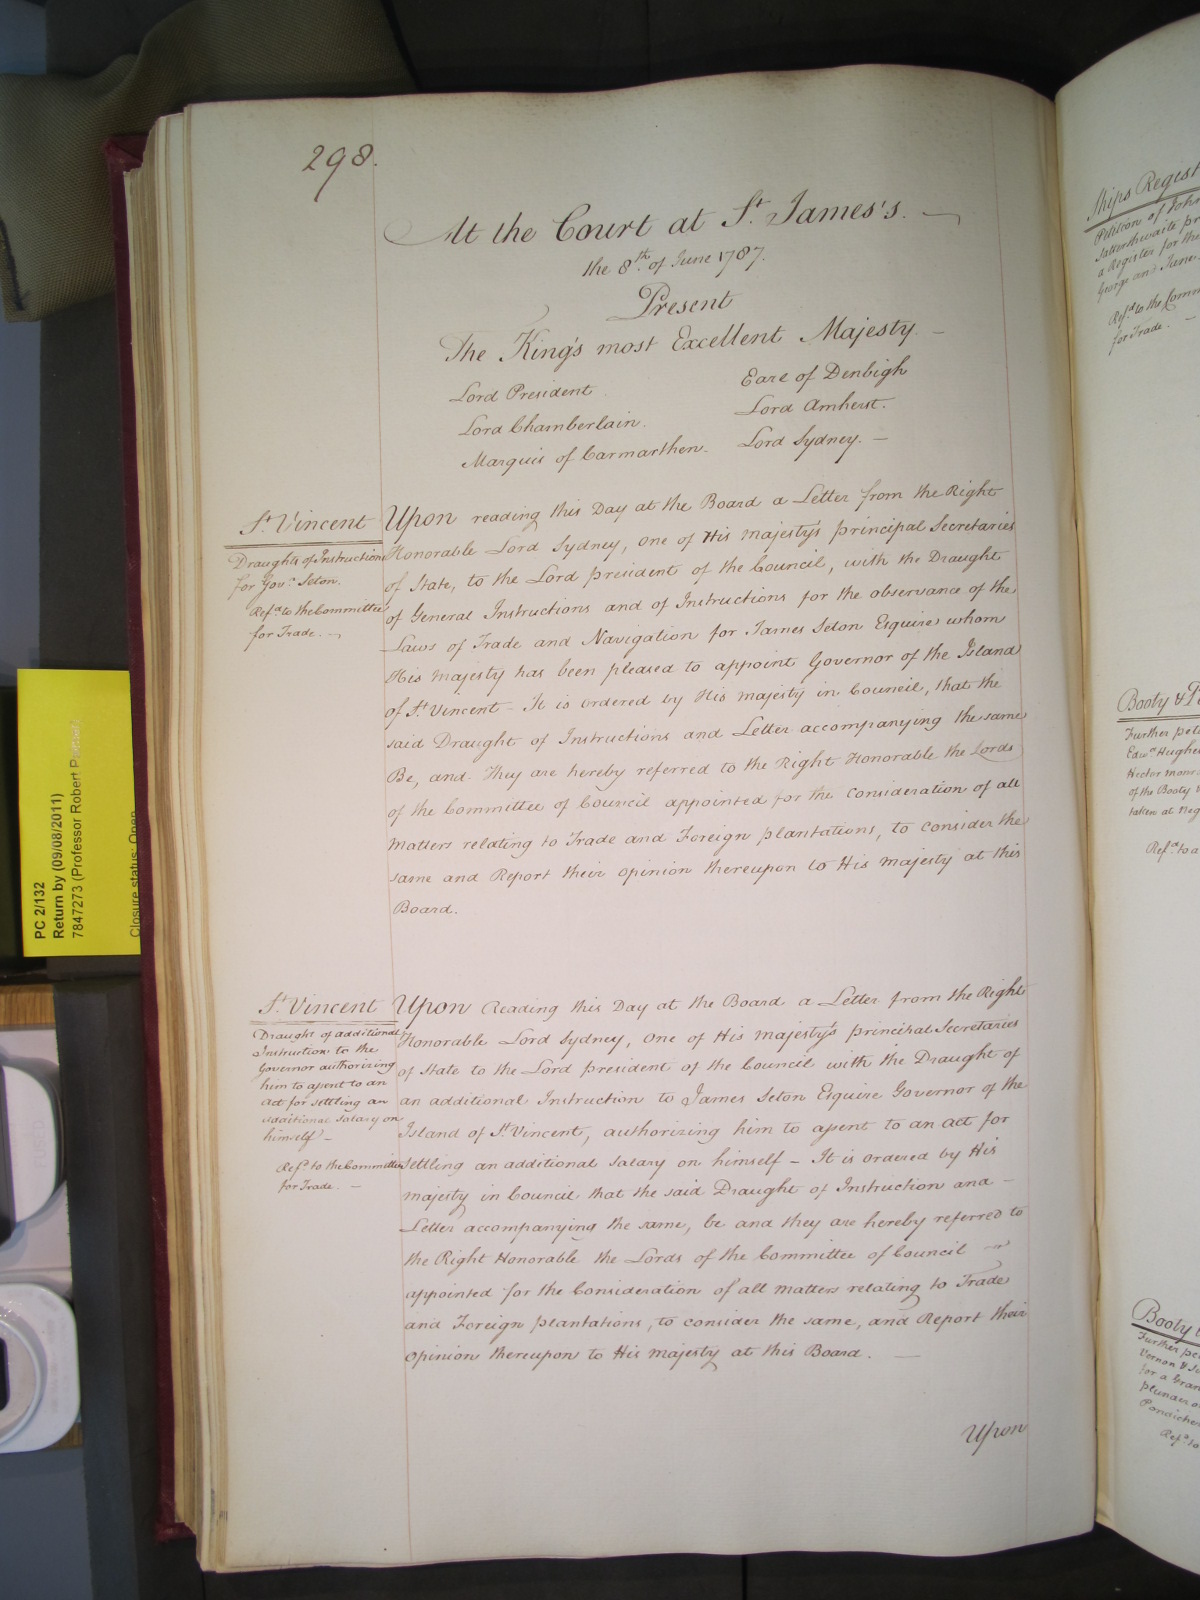 298.
At the Court at St. James's.
the 8th. of June 1787.
Present
The King's most Excellent Majesty.
Lord President
Lord Chamberlain.
Marquis of Carmarthen.
Earl of Denbigh
Lord Amherst.
Lord Sydney.
St. Vincent
Draughts of Instructions
for Govr. Seton.
Refd. to the Committee
for Trade.
Upon reading this Day at the Board a Letter from the Right
Honorable Lord Sydney, one of His Majesty's principal Secretaries
of State, to the Lord president of the Council, with the Draught
of General Instructions and of Instructions for the observance of the
Laws of Trade and Navigation for James Seton Esquire whom
His Majesty has been pleased to appoint Governor of the Island
of St. Vincent - It is ordered by His Majesty in Council, that the
said Draught of Instructions and Letter accompanying the same
Be, and They are hereby referred to the Right Honorable the Lords
of the Committee of Council appointed for the Consideration of all
Matters relating to Trade and Foreign plantations, to consider the
same and Report their opinion thereupon to His Majesty at this
Board.
St. Vincent
Draught of additional
Instruction to the
Governor authorizing
him to assent to an
Act for settling an
additional salary on
himself -
Refd. to the Committee
for Trade.
Upon Reading this Day at the Board a Letter from the Right
Honorable Lord Sydney, One of His Majesty's principal Secretaries
of State to the Lord president of the Council with the Draught of
an additional Instruction to James Seton Esquire Governor of the
Island of St. Vincent, authorizing him to assent to an Act for
settling an additional salary on himself - It is ordered by His
Majesty in Council that the said Draught of Instruction and -
Letter accompanying the same, be and they are hereby referred to
the Right Honorable the Lords of the Committee of Council
appointed for the Consideration of all matters relating to Trade
and Foreign plantations, to consider the same, and Report their
opinion thereupon to His Majesty at this Board.
Upon
PC 2/132
Return by (09/08/2011)
7847273 (Professor Robert
Closure status: Open
Ships Regist
Petition of John
Satterthwaite pr
a Register for the
George and Jane.
Refd. to the Comm
for Trade.
Booty &
Further pet
Edwd. Hughes
Hector Monr
of the Booty
taken at Neg
Refd. to a
Booty
Further pe
Vernon &
for a Gran
plunder o
Pondicher
Refd. to